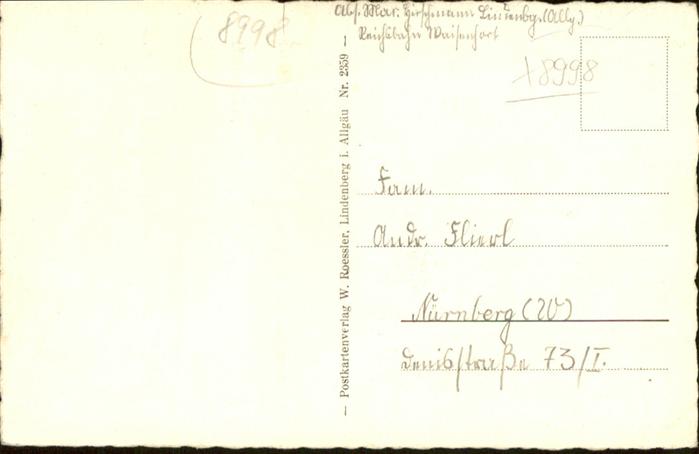 8998
Abs. Mar. Hirschmann Lindenbg. (Allg.)
Reichsbahn Waisenhort
+8998
— Postkartenverlag W. Roessler, Lindenberg i. Allgäu Nr. 2359 —
Fam.
Andr. Flierl
Nürnberg (W)
Denisstraße 73/I.